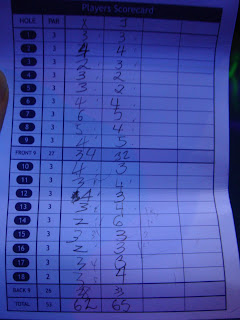 Players Scorecard
HOLE PAR J J
1 3 3 3
2 3 4 4
3 3 2 3
4 3 3 2
5 3 3 2
6 3 4 4
7 3 6 5
8 3 5 4
9 3 4 5
FRONT 9 27 34 32
10 3 4 3
11 3 3 4
12 3 4 3
13 3 3 4
14 3 2 6
15 3 2 3
16 3 2 3
17 3 3
18 2 4
BACK 9 26 33
TOTAL 62 65